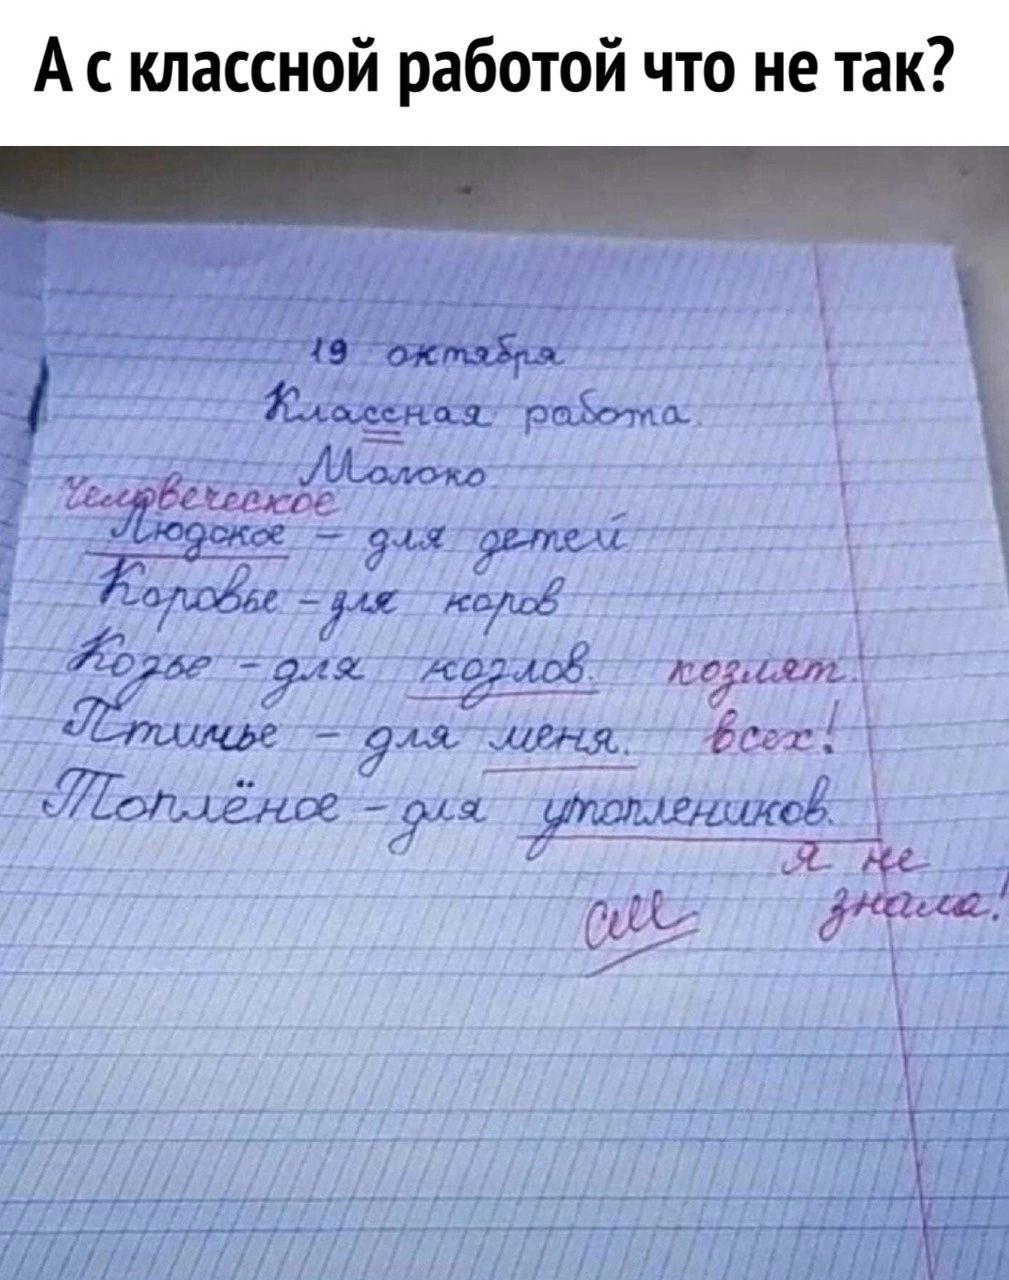 А с классной работой что не так?
19 октября
Классная работа.
Молоко
Человеческое
Людское – для детей
Коровье – для коров
Козье – для козлов. козлят.
Птичье – для меня. всех!
Топлёное – для утоплеников.
я не
знала!
см